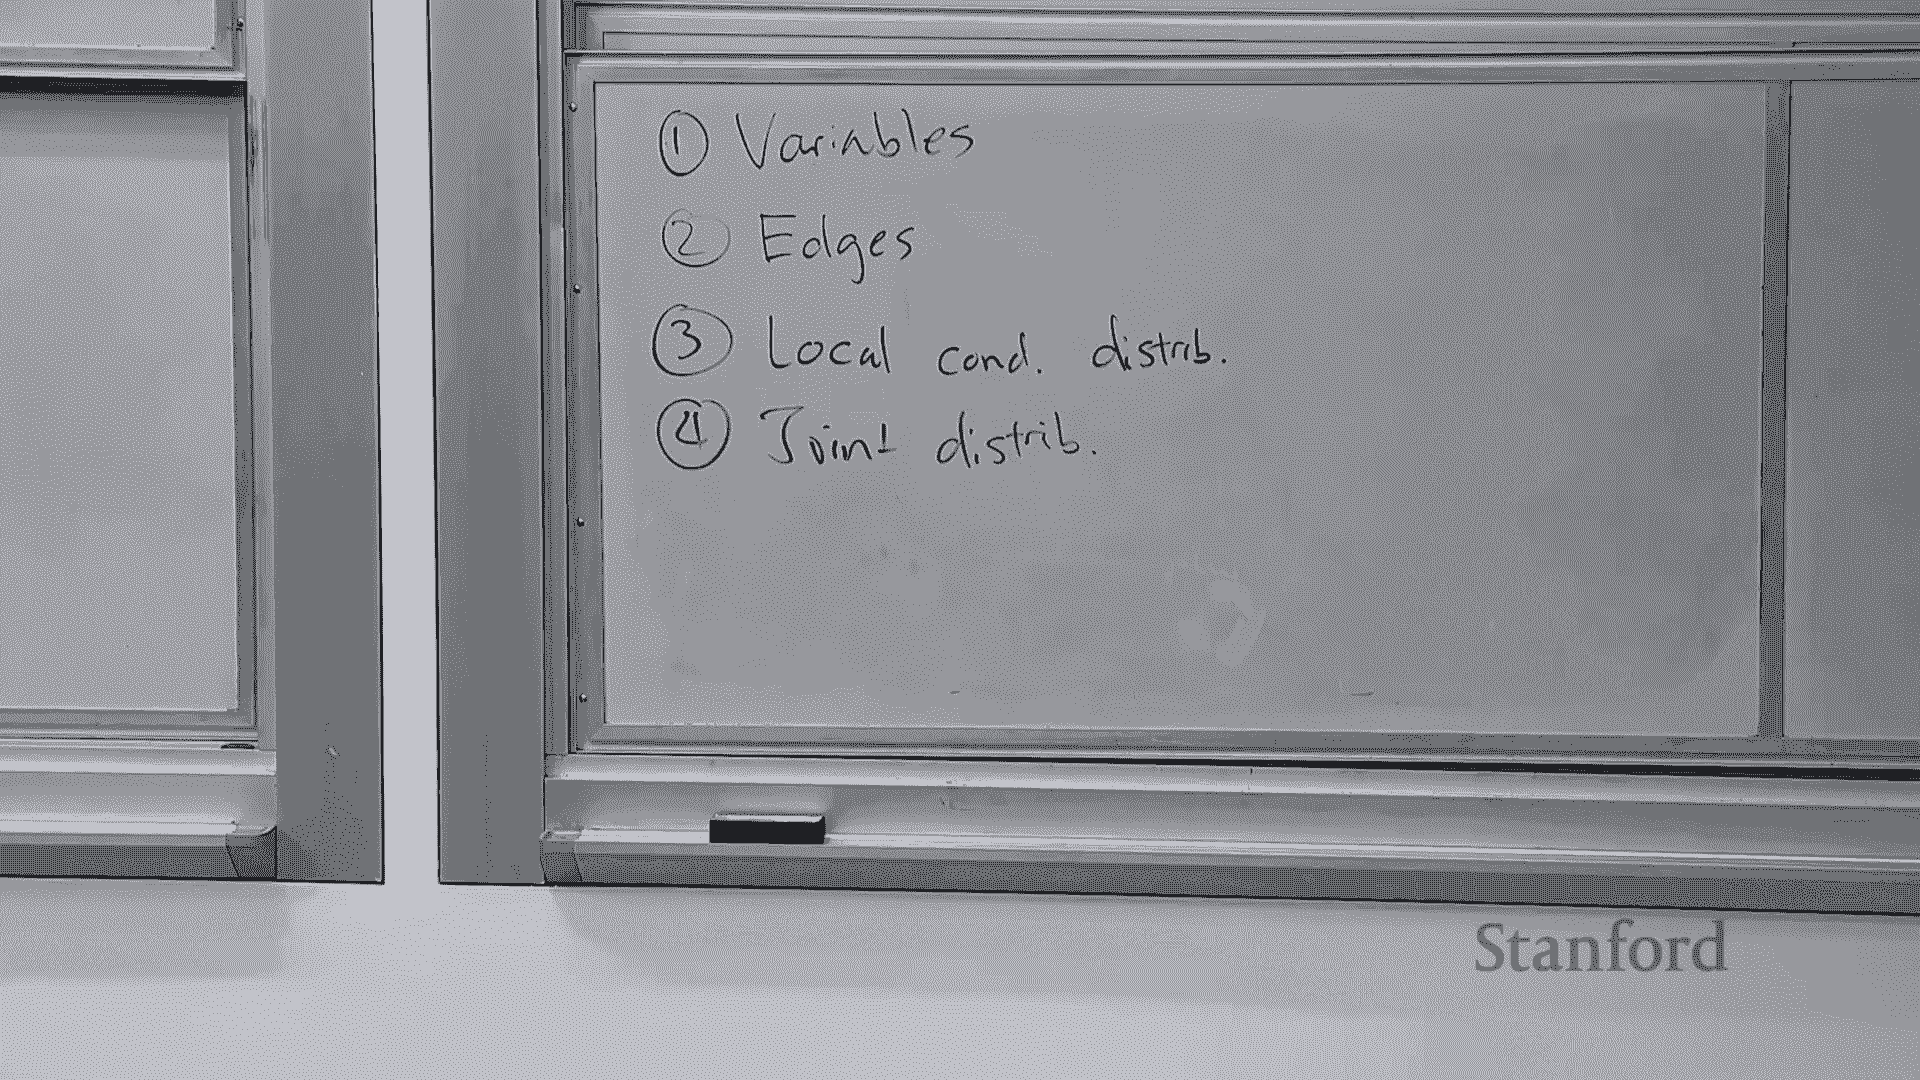 ① Variables
② Edges
③ Local cond. distrib.
④ Joint distrib.
Stanford